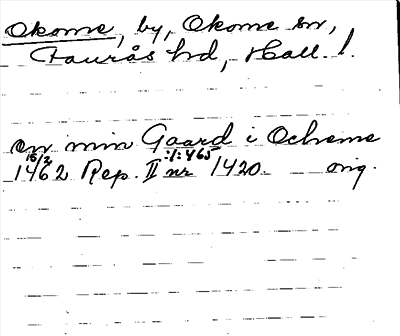 Okome, by, Okome sn,
Faurås hd, Hall. l.
en min Gaard i Ocheme
15/2 :1:465
1462 Rep. II nr 1420. orig.